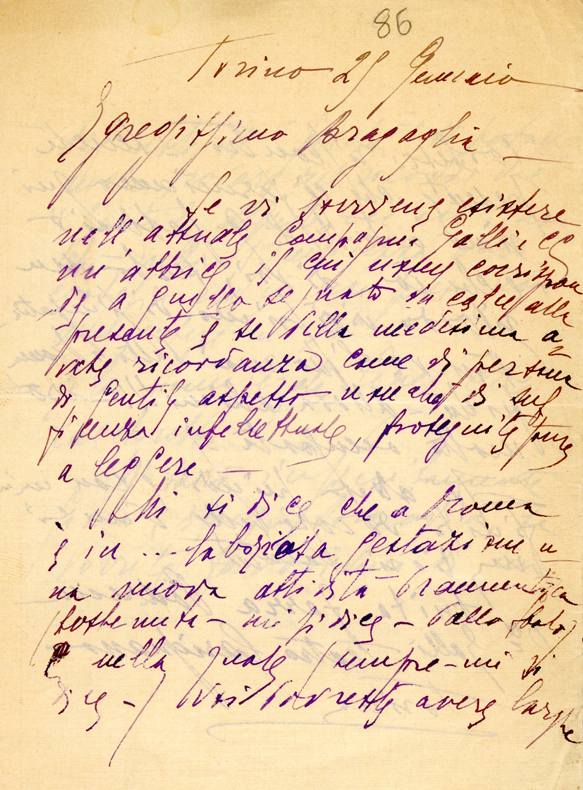 86
Torino 25 Gennaio
Egregissimo Bragaglia
Se vi sovviene esistere
nell'attuale Compagnia Galli etc
un'attrice il cui nome corrispon
de a quello segnato in calce alla
presente e se della medesima a-
vete ricordanza come di persona
di gentile aspetto nonché di suf
ficenza intellettuale, proseguite pure
a leggere —
Mi si dice che a Roma
è in ... laboriosa gestazione u-
na nuova attività Drammatica
(sostenuta – mi si dice – dallo stato)
nella quale (sempre – mi si
dice –) Voi dovreste avere large